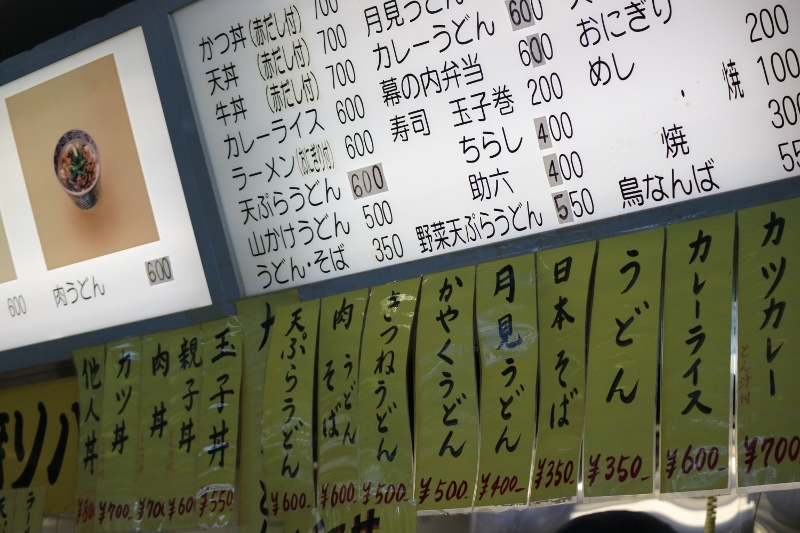 かつ丼(赤だし付) 700
天丼(赤だし付) 700
牛丼(赤だし付) 700
カレーライス 600
ラーメン(おにぎり付) 600
天ぷらうどん 600
山かけうどん 500
うどん・そば 350
月見うどん 600
カレーうどん 600
幕の内弁当
寿司 玉子巻 200
ちらし 400
助六 400
野菜天ぷらうどん 550
おにぎり 200
めし 100
焼 300
焼
鳥なんば
600
肉うどん 600
他人丼
カツ丼 ¥700-
肉丼
親子丼
玉子丼 ¥550
天ぷらうどん ¥600-
肉うどんそば ¥600
きつねうどん ¥500
かやくうどん ¥500
月見うどん ¥400-
日本そば ¥350
うどん ¥350-
カレーライス ¥600-
カツカレー ¥700